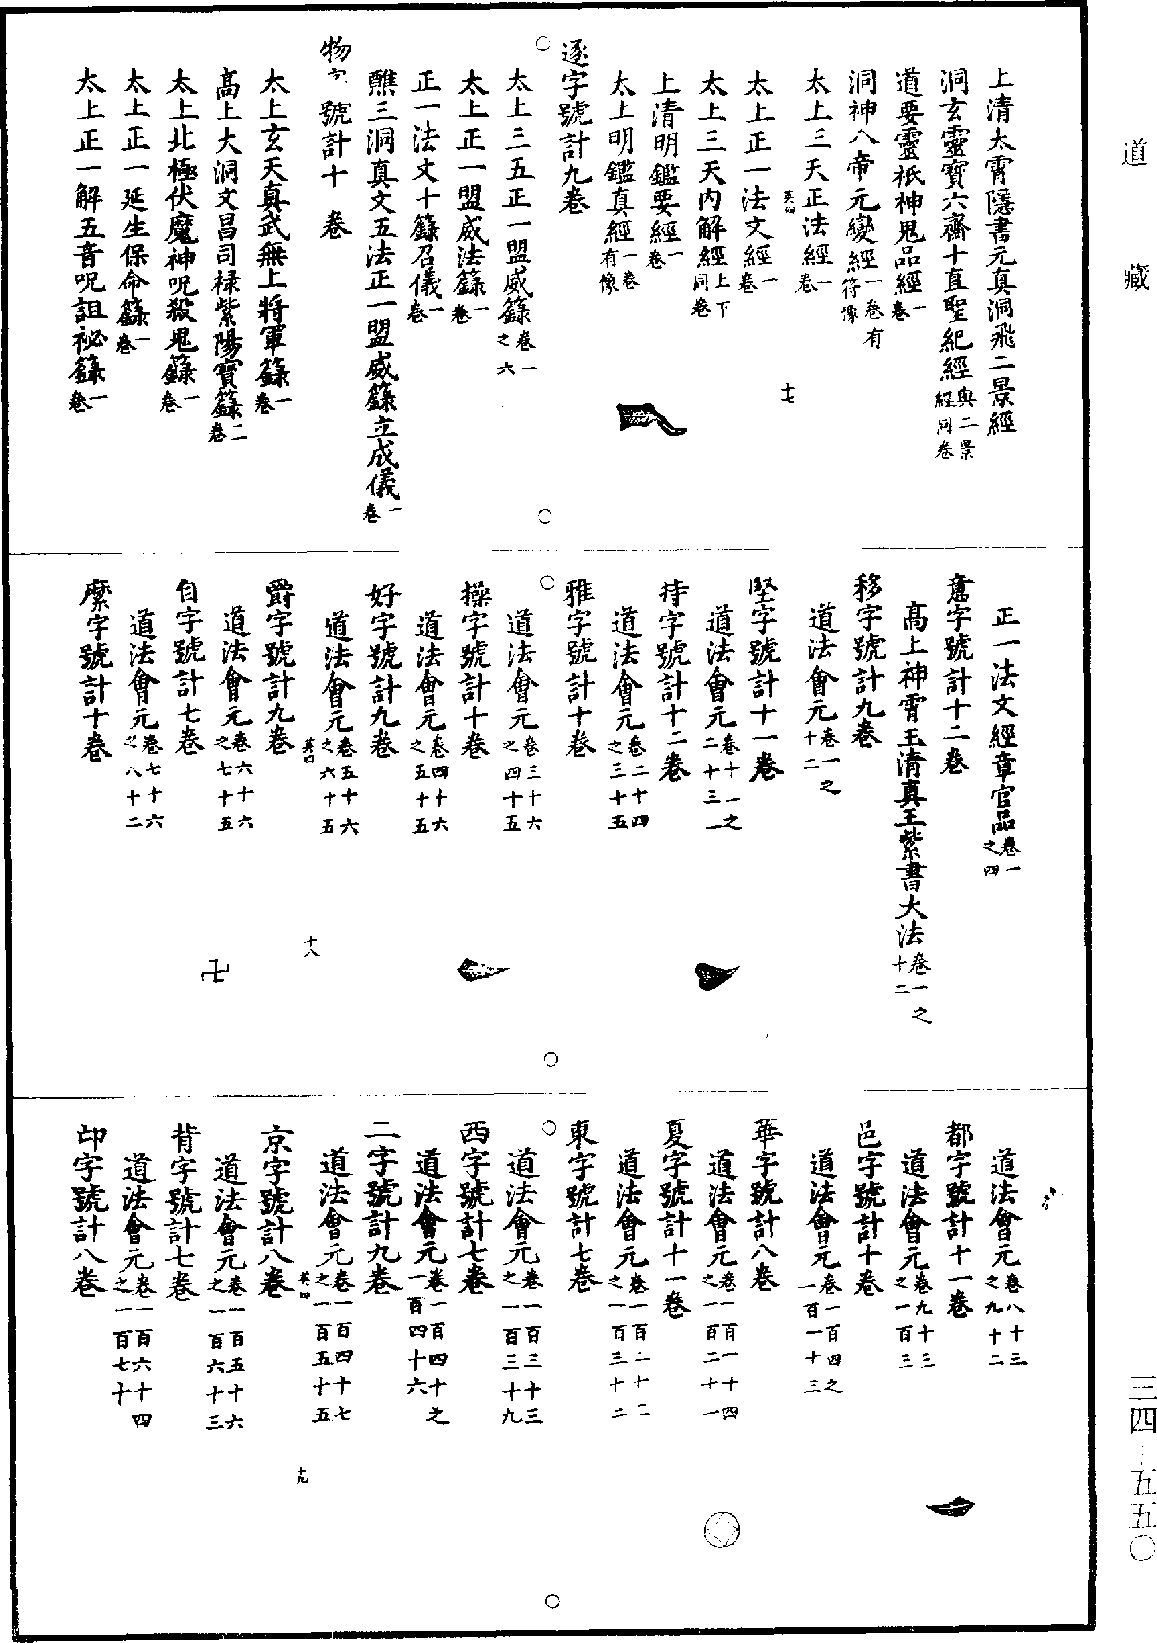 道藏
上清太霄隱書元真洞飛二景經
洞玄靈寶六齋十直聖紀經與二景經同卷
道要靈祇神鬼品經一卷
洞神八帝元變經一卷有符像
太上三天正法經一卷
太上正一法文經一卷
太上三天內解經上下同卷
上清明鑑要經一卷
太上明鑑真經一卷有像
逐字號計九卷
太上三五正一盟威籙卷一之六
太上正一盟威法籙一卷
正一法文十籙召儀一卷
醮三洞真文五法正一盟威籙立成儀一卷
物字號計十卷
太上玄天真武無上將軍籙一卷
高上大洞文昌司祿紫陽寶籙二卷
太上北極伏魔神呪殺鬼籙一卷
太上正一延生保命籙一卷
太上正一解五音呪詛祕籙一卷
十七
正一法文經章官品卷一之四
意字號計十二卷
高上神霄玉清真王紫書大法卷一之十二
移字號計九卷
道法會元卷一之十二
堅字號計十一卷
道法會元卷十一之二十三一
持字號計十二卷
道法會元卷二十四之三十五
雅字號計十卷
道法會元卷三十六之四十五
操字號計十卷
道法會元卷四十六之五十五
好字號計九卷
道法會元卷五十六之六十五
爵字號計九卷
道法會元卷六十六之七十五
自字號計七卷
道法會元卷七十六之八十二
縻字號計十卷
十八
卍
道法會元卷八十三之九十二
都字號計十一卷
道法會元卷九十三之一百三
邑字號計十卷
道法會元卷一百四之一百一十三
華字號計八卷
道法會元卷一百一十四之一百二十一
夏字號計十一卷
道法會元卷一百二十二之一百三十二
東字號計七卷
道法會元卷一百三十三之一百三十九
西字號計七卷
道法會元卷一百四十之一百四十六
二字號計九卷
道法會元卷一百四十七之一百五十五
京字號計八卷
道法會元卷一百五十六之一百六十三
背字號計七卷
道法會元卷一百六十四之一百七十
邙字號計八卷
十九
三四—五五〇